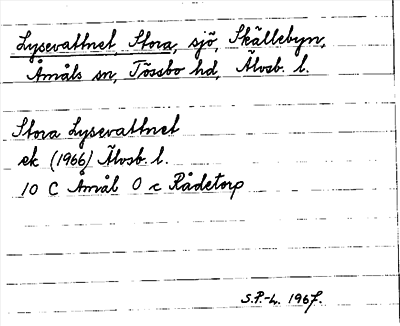 Lysevattnet, Stora, sjö, Skällebyn,
Åmåls sn, Tössbo hd, Älvsb. l.
Stora Lysevattnet
ek (1966) Älvsb. l.
10 C Åmål O c Rådetorp
S.P-L. 1967.